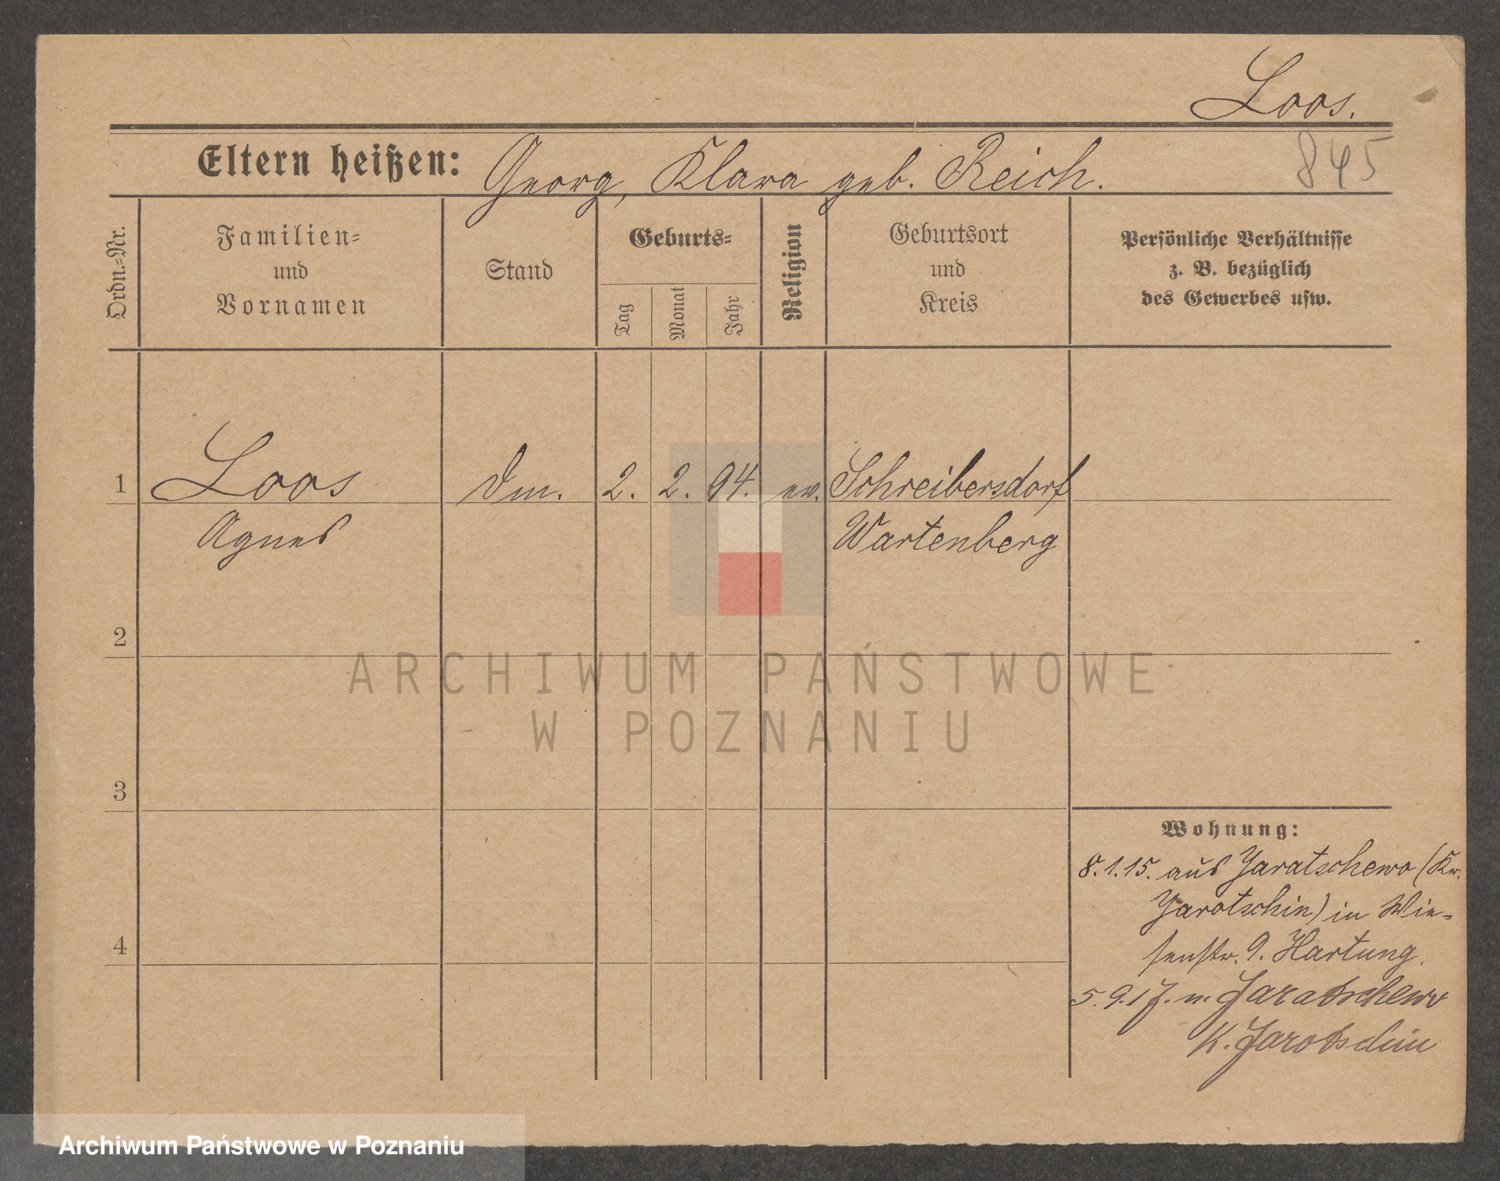 Loos.
Eltern heißen: Georg, Klara geb. Reich.
845
Ordn.-Nr.
Familien-
und
Vornamen
Stand
Geburts-
Tag
Monat
Jahr
Religion
Geburtsort
und
Kreis
Persönliche Verhältnisse
z. B. bezüglich
des Gewerbes usw.
1 Loos 2. 2. 94. ev. Schreibersdorf
Agnes Wartenberg
2
ARCHIWUM PAŃSTWOWE
W POZNANIU
3
Wohnung:
8.1.15. aus Jaratschewo (Kr.
Jarotschin) in Wie-
senstr. 9. Hartung.
4
5.9.17. n. Jaratschewo
K. Jarotschin
Archiwum Państwowe w Poznaniu